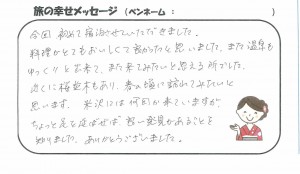 旅の幸せメッセージ （ペンネーム： ）
今回 初めて宿泊させていただきました。
料理がとてもおいしくて良かったと思いました。また温泉も
ゆっくりと出来て、また来てみたいと思える所でした。
近くに桜並木もあり、春の頃に訪れてみたいと
思います。米沢には何回か来ていますが、
ちょっと足を延ばせば 新発見があることを
知りました。ありがとうございました。